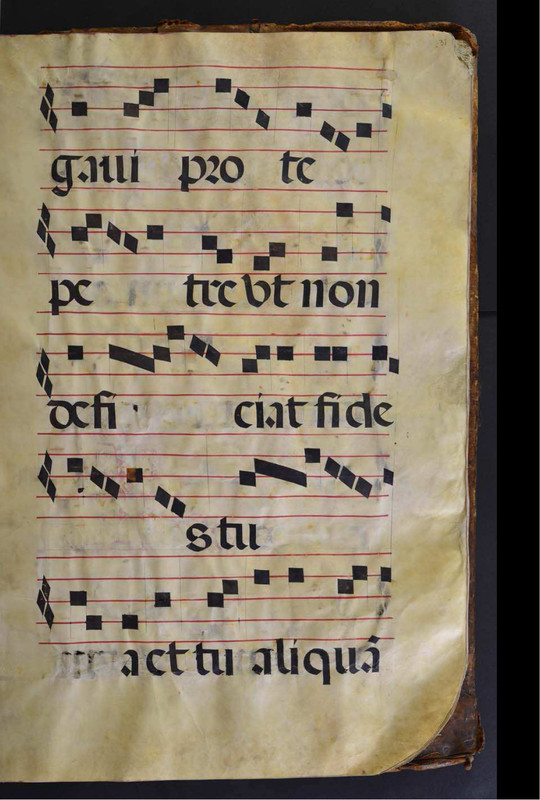 gaui pro te
pe tre vt non
defi ciat fi de
s tu
a et tu aliquā